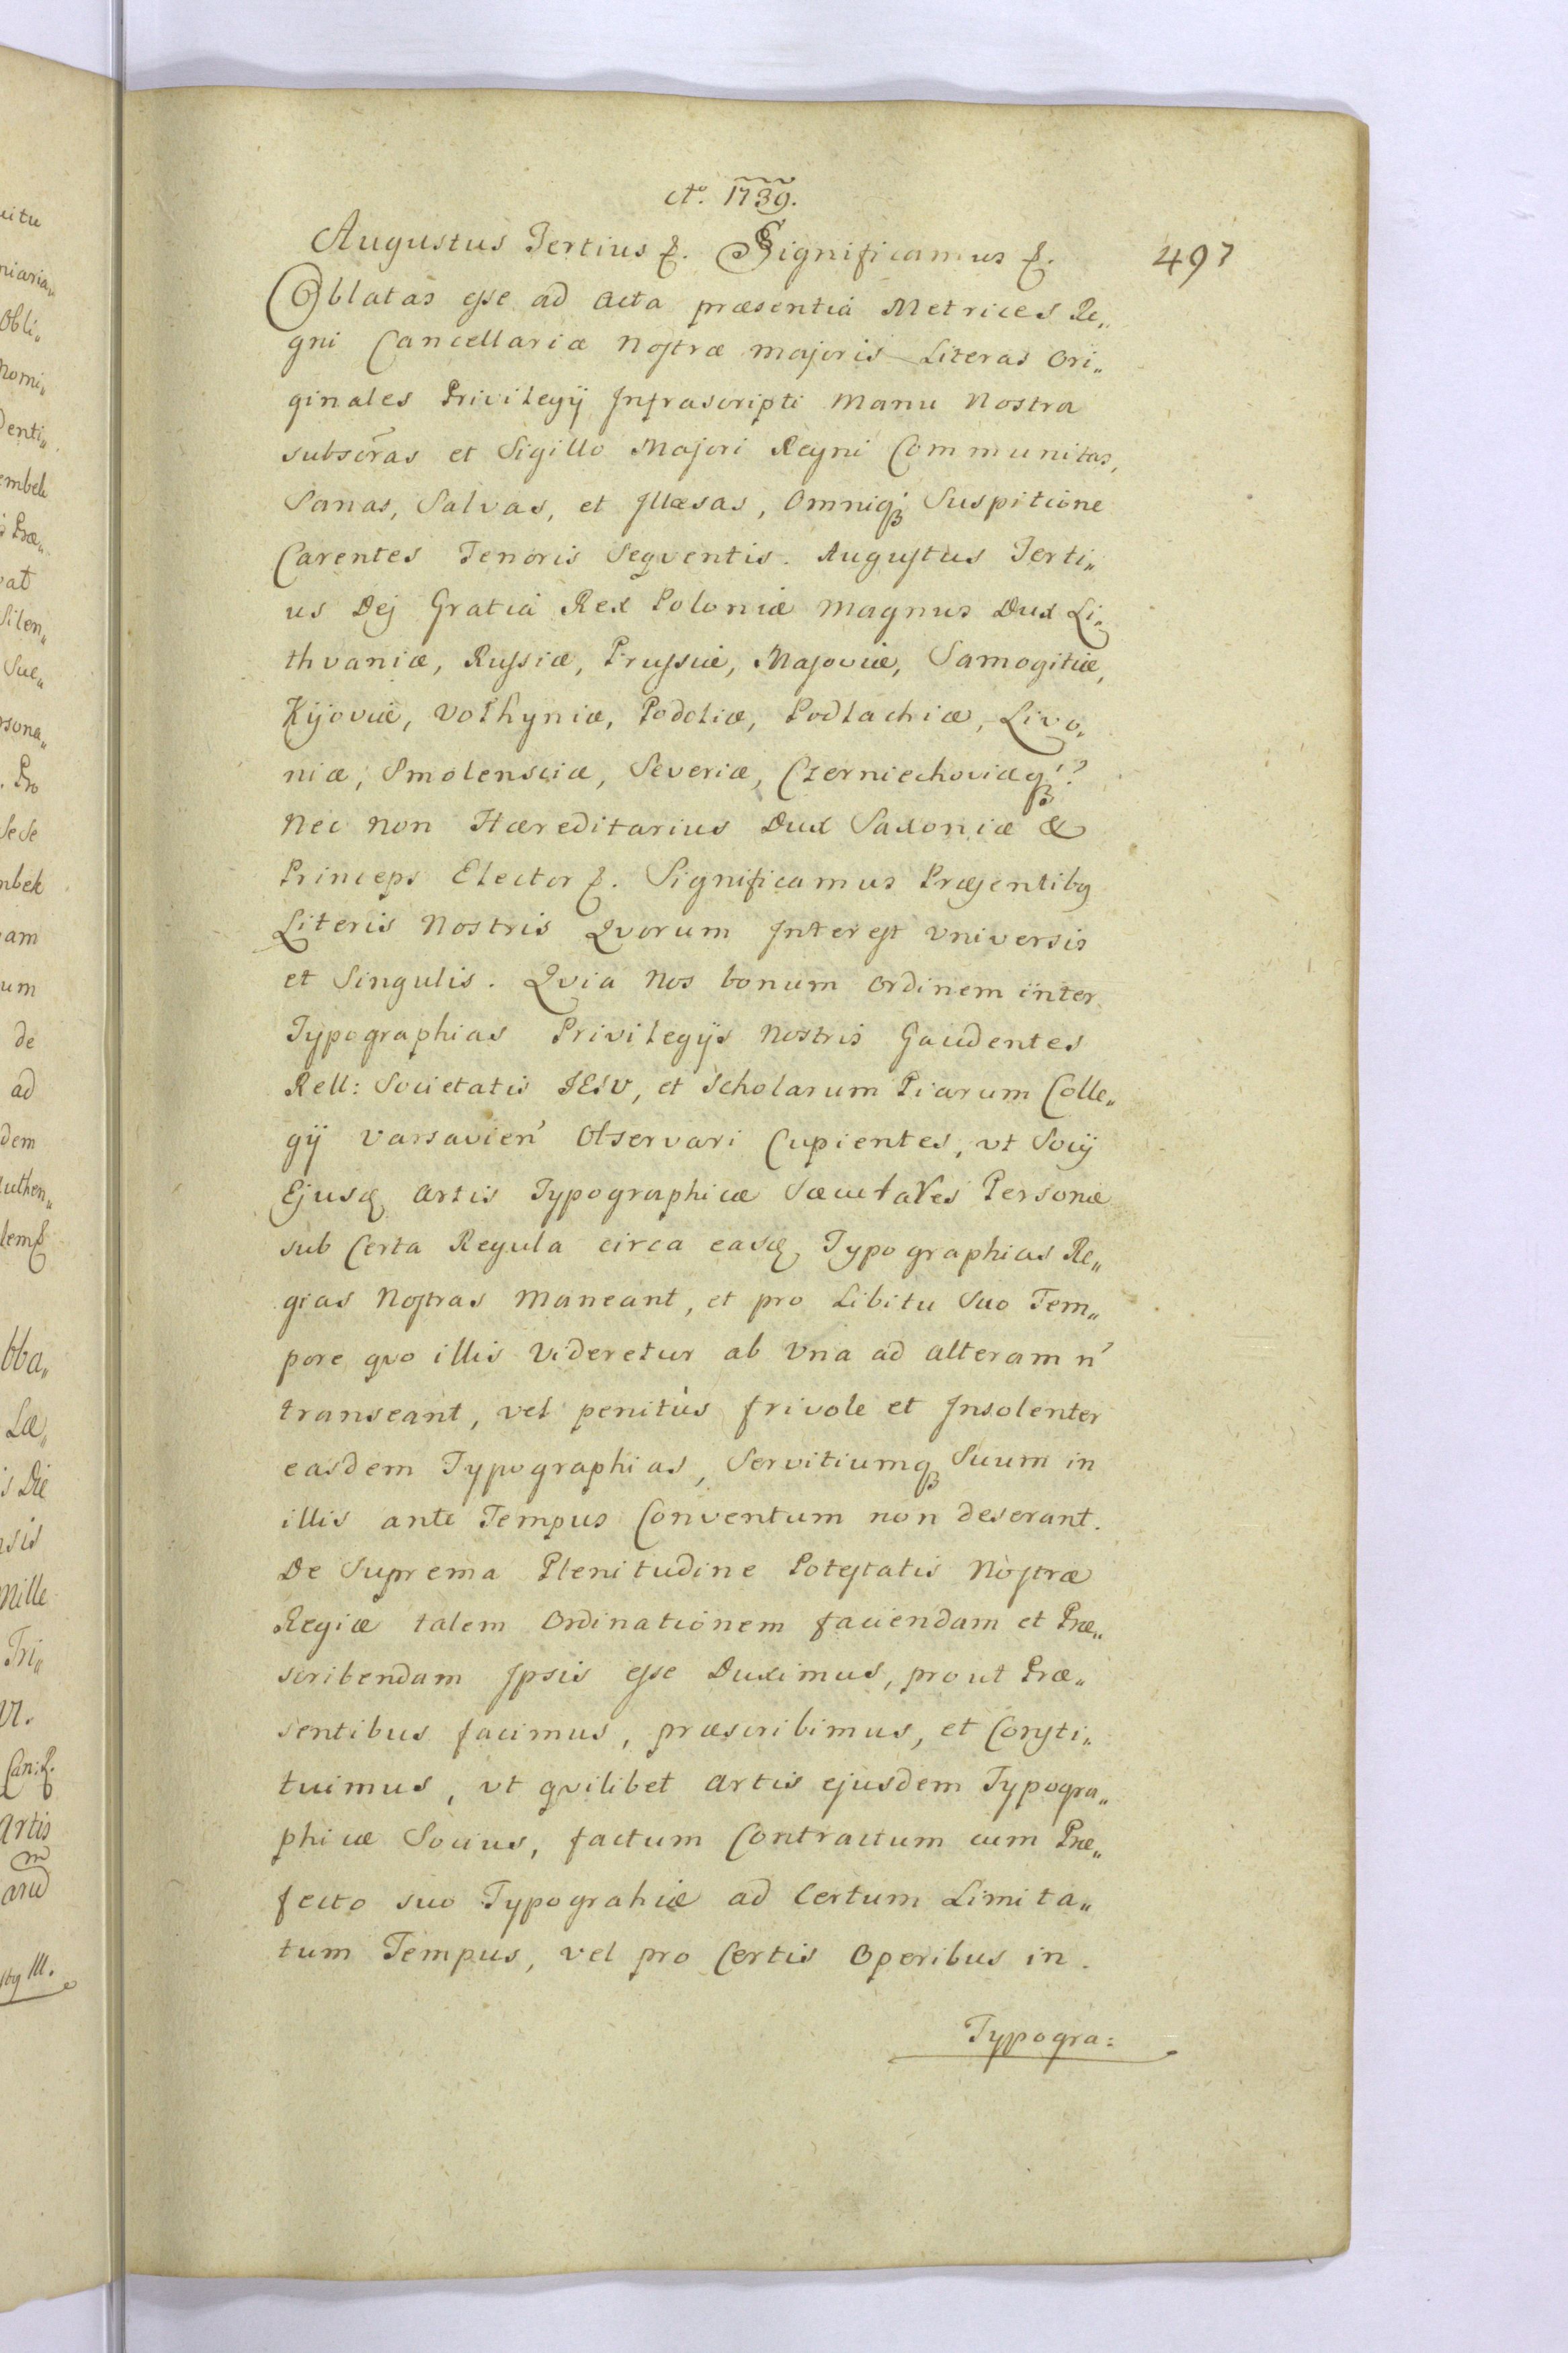 Aō. 1739.
497
Augustus Tertius &. Significamus &.
Oblatas esse ad Acta præsentia Metrices Re„
gni Cancellariæ Nostræ Majoris Literas Ori„
ginales Privilegÿ Infrascripti Manu Nostra
subscr̄as et Sigillo Majori Regni Communitas,
Sanas, Salvas, et Illæsas, Omniq́ꝫ Suspitione
Carentes Tenoris Seqventis. Augustus Terti„
us Dej Gratiá Rex Poloniæ Magnus Dux Li„
thvaniæ, Russiæ, Prussiæ, Masoviæ, Samogitiæ,
Kijoviæ, Volhyniæ, Podoliæ, Podlachiæ, Livo„
niæ, Smolensciæ, Severiæ, Czerniechoviæq́ꝫ?
Nec non Hæreditarius Dux Saxoniæ &
Princeps Elector &. Significamus Præsentibꝫ
Literis Nostris Qvorum Interest Vniversis
et Singulis. Qvia Nos bonum Ordinem inter
Typographias Privilegÿs Nostris Gaudentes
Rell: Societatis IESV, et Scholarum Piarum Colle„
gÿ Varsavien̓ Observari Cupientes, vt Socÿ
Ejusꝗ Artis Typographicæ Sæculares Personæ
sub Certa Regula circa easꝗ Typographias Re„
gias Nostras Maneant, et pro Libitu Suo Tem„
pore qvo illis Videretur ab Vna ad Alteram n̓
transeant, vel penitùs frivole et Insolenter
easdem Typographias, Servitiumqꝫ Suum in
illis ante Tempus Conventum non deserant.
De Suprema Plenitudine Potestatis Nostræ
Regiæ talem Ordinationem faciendam et Præ„
scribendam Ipsis esse Duximus, prout Præ„
sentibus facimus, præscribimus, et Consti„
tuimus, vt qvilibet Artis ejusdem Typogra„
phicæ Socius, factum Contractum cum Præ„
fecto suo Typograhiæ ad Certum Limita„
tum Tempus, vel pro Certis Operibus in.
Typogra: